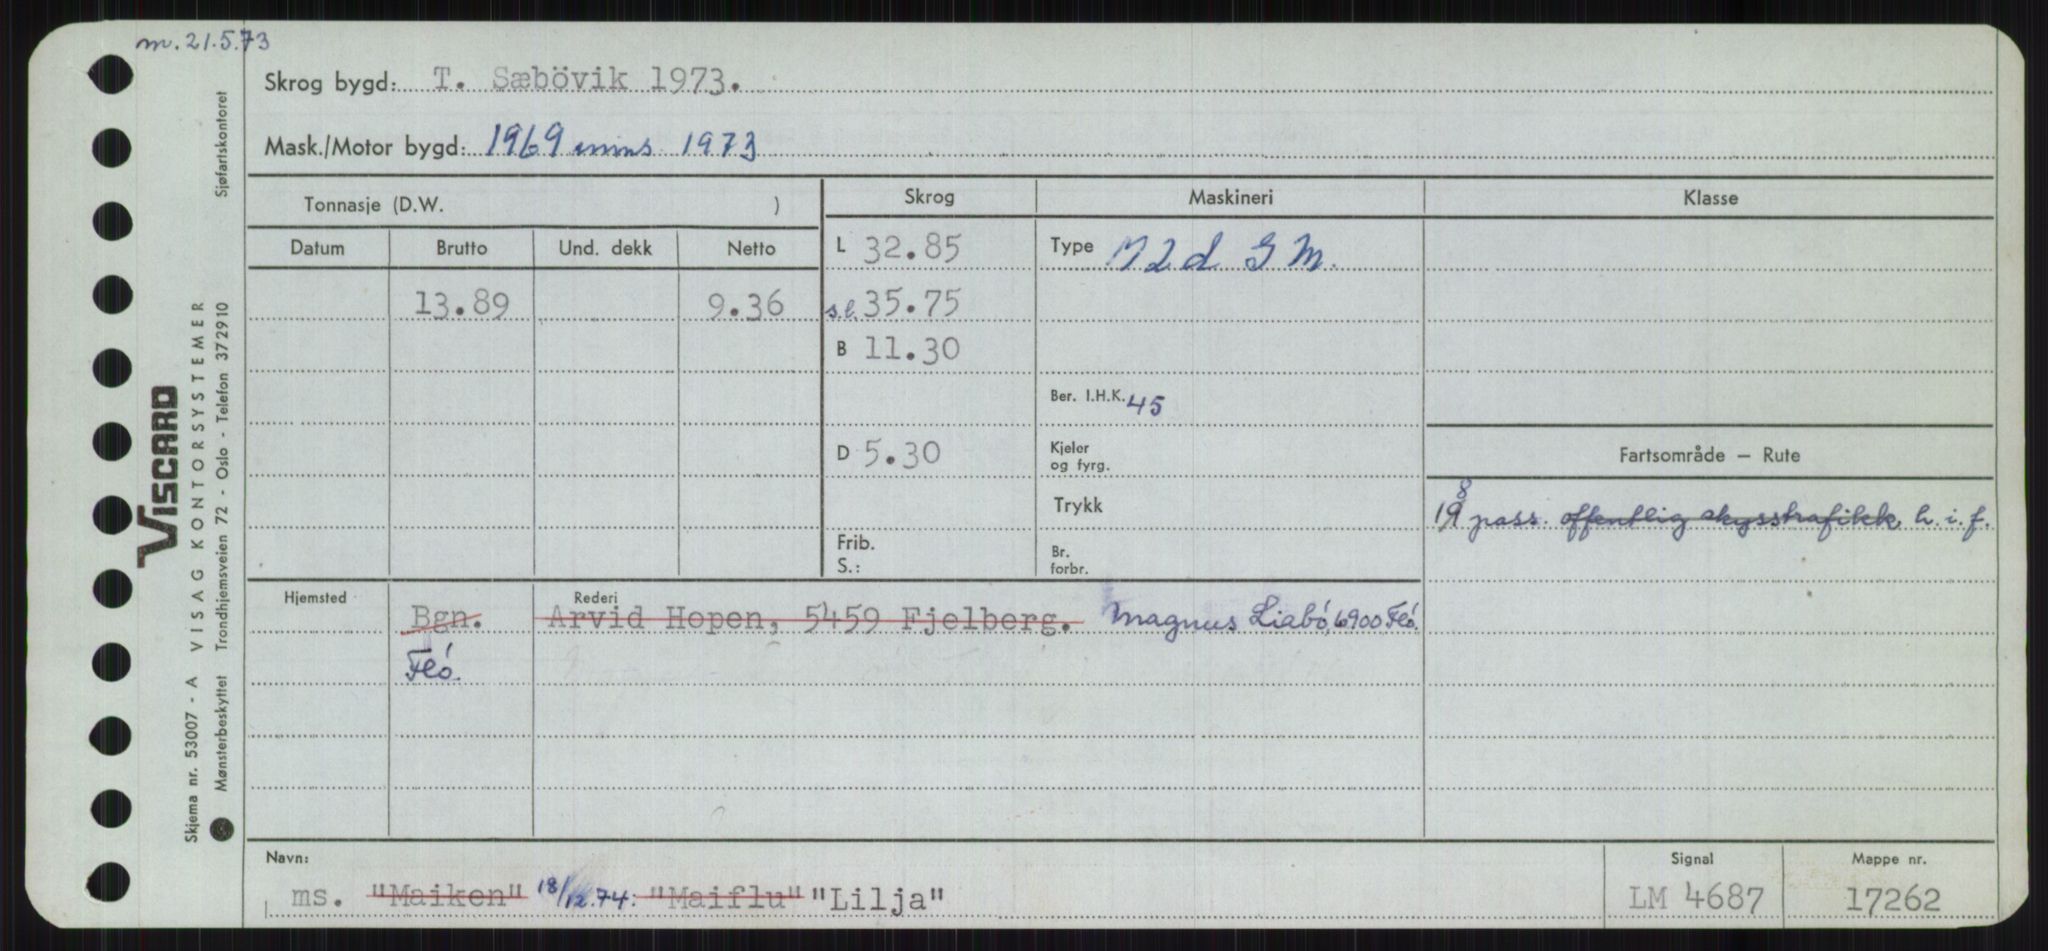 m. 21.5.73
Skrog bygd: T. Sæbövik 1973.
Mask./Motor bygd: 1969 inns 1973
Tonnasje (D.W. )
Skrog
Maskineri
Klasse
Datum Brutto Und. dekk Netto
L 32.85
Type M2d G M.
13.89 9.36
s.l. 35.75
B 11.30
Ber. I.H.K. 45
D 5.30
Kjeler og fyrg.
Fartsområde – Rute
Trykk
198 pass. offentlig skysstrafikk h. i. f.
Frib.
S.:
Br. forbr.
Hjemsted Bgn. Rederi Arvid Hopen, 5459 Fjelberg. Magnus Liabó, 6900 Fló.
Fló.
Navn:
Signal
Mappe nr.
ms. "Maiken" 18/12.74: "Maiflu" "Lilja"
LM 4687
17262
Sjøfartskontoret
VISCARD
VISAG KONTORSYSTEMER
Trondhjemsveien 72 - Oslo - Telefon 372910
Skjema nr. 53007 - A
Mønsterbeskyttet